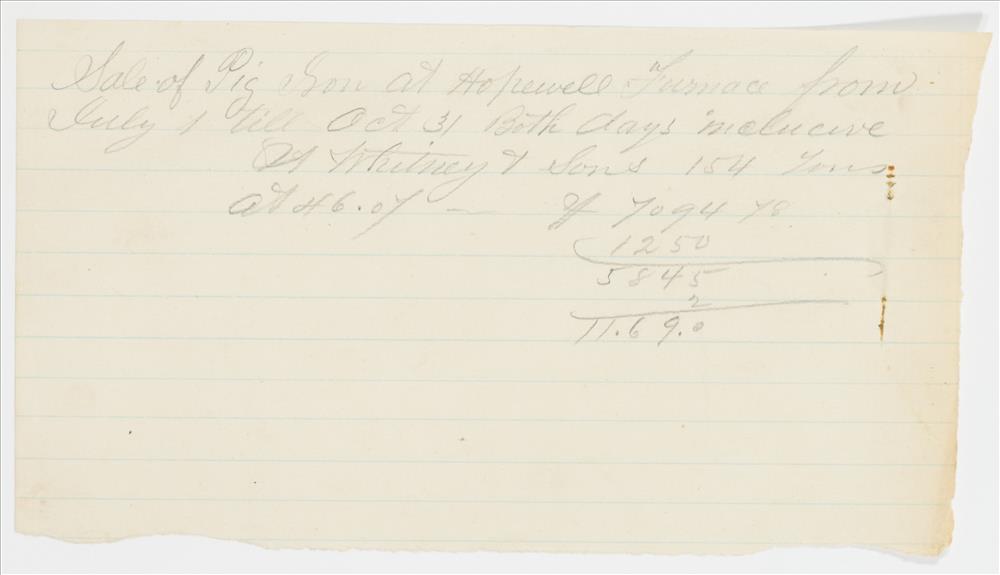 Sale of Pig Iron at Hopewell Furnace from
July 1 till Oct 31 Both days inclucive
A Whitney & Sons 154 Tons
at 46.07 — $ 7094 78
1250
5845
2
11.69.0